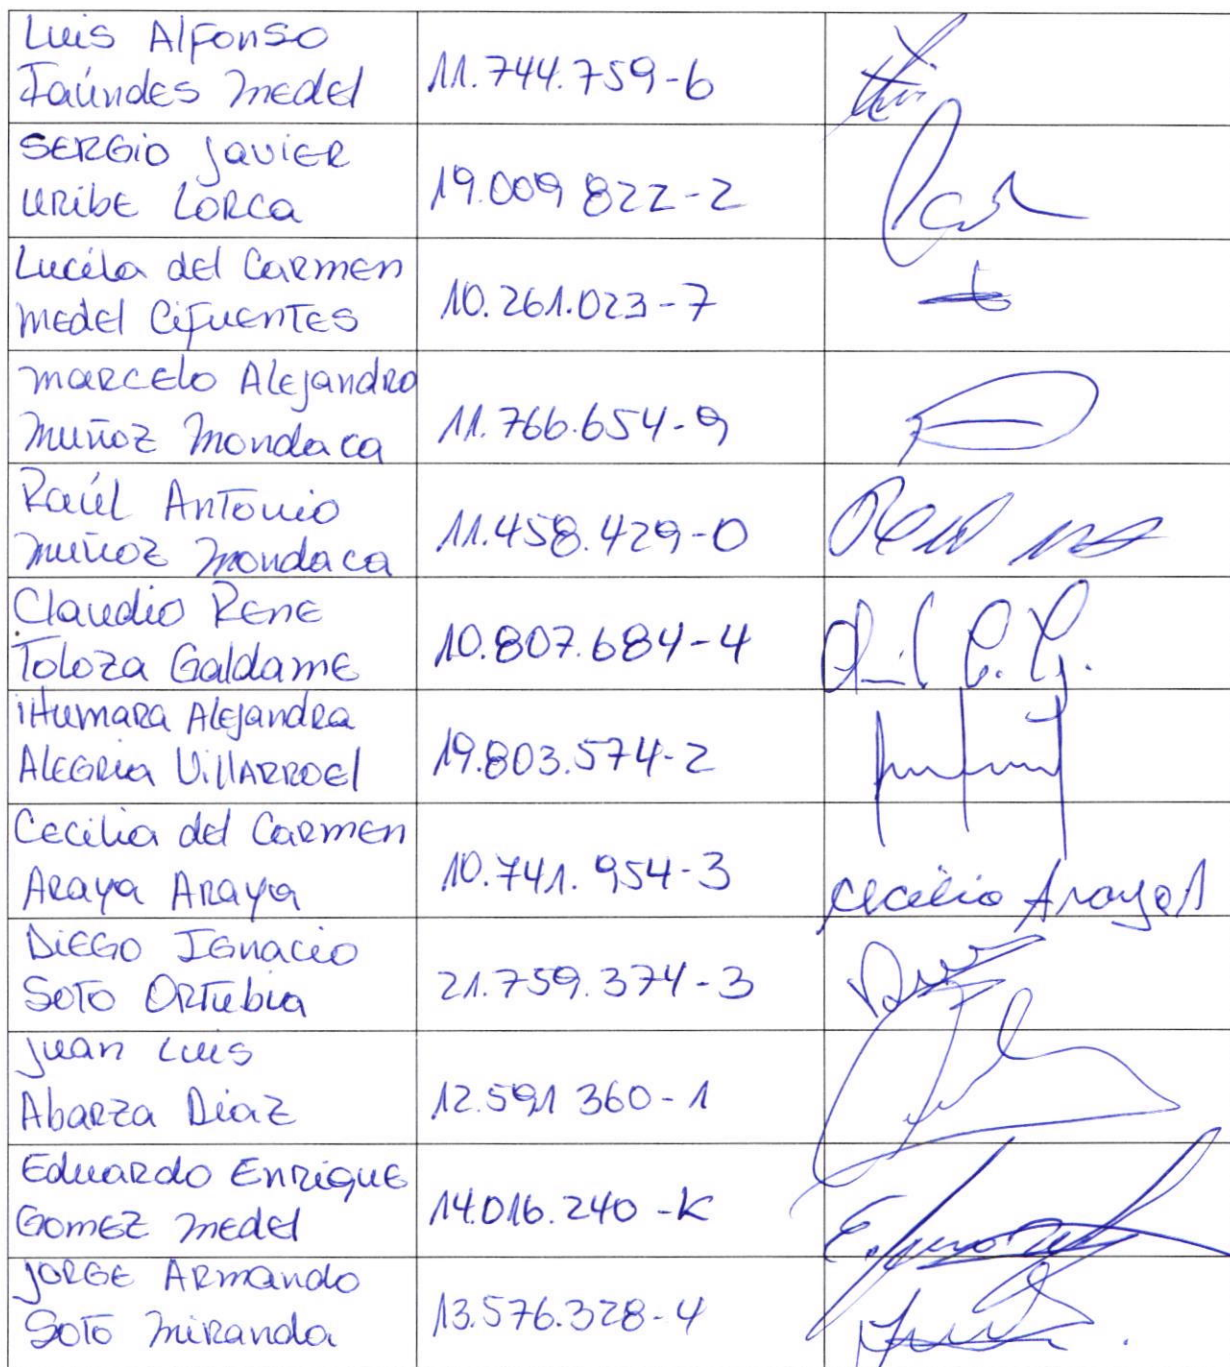 Luis Alfonso
Faúndes Medel
11.744.759-6
SERGio JaviER
URibE LORca
19.009 822-2
Lucila del CaRmen
MEdEl CifuenTES
10.261.023-7
MaRCElo AlEjandRo
Muñoz Mondaca
11.766.654-9
Raúl AnTonio
Muñoz Mondaca
11.458.429-0
Claudio RENE
Toloza Galdame
10.807.684-4
iHumaRa AlEjandRa
AlEGRia VillARROEl
19.803.574-2
Cecilia del CaRmen
ARaya ARaya
10.741.954-3
Cecilia Araya A
DiEGO IGnacio
SoTo ORTubia
21.759.374-3
Juan Luis
AbaRza Diaz
12.591 360-1
EduaRdo EnRiquE
GomEZ MEdEl
14.016.240-K
JORGE ARmando
SoTo MiRanda
13.576.328-4